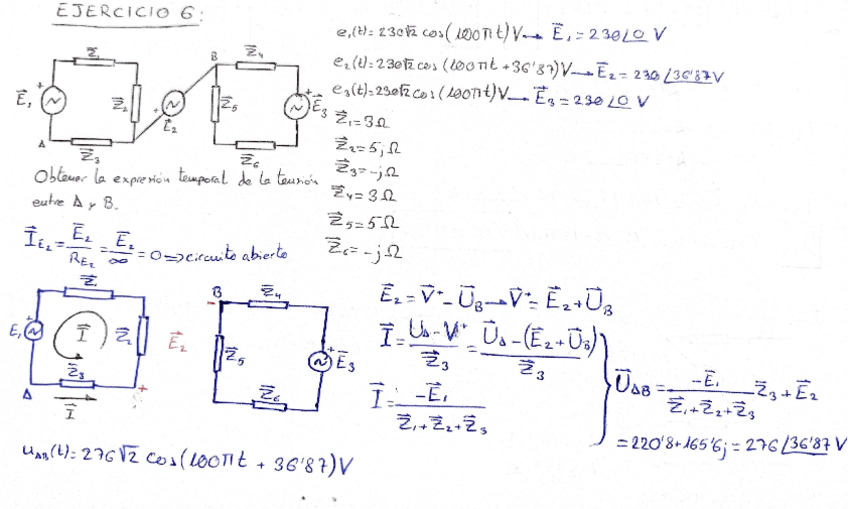 EJERCICIO 6:
e₁(t)=230√2 cos(100πt)V → E⃗₁=230∠0 V
e₂(t)=230√2 cos(100πt+36'87)V → E⃗₂=230∠36'87 V
e₃(t)=230√2 cos(100πt)V → E⃗₃=230∠0 V
Z⃗₁ B Z⃗₄
E⃗₁ + Z⃗₂ + E⃗₂ Z⃗₅ + E⃗₃
A Z⃗₃ Z⃗₆
Z⃗₁=3Ω
Z⃗₂=5jΩ
Z⃗₃=-jΩ
Z⃗₄=3Ω
Z⃗₅=5Ω
Z⃗₆=-jΩ
Obtener la expresión temporal de la tensión
entre A y B.
I⃗E₂=E⃗₂/RE₂=E⃗₂/∞=0⇒circuito abierto
Z⃗₁ - B Z⃗₄
E₁ + I⃗ Z⃗₂ E⃗₂ Z⃗₅ + E⃗₃
A Z⃗₃ + Z⃗₆
I⃗
E⃗₂=V⃗⁺-U⃗B → V⃗⁺=E⃗₂+U⃗B
I⃗=(U⃗A-V⃗⁺)/Z⃗₃=(U⃗A-(E⃗₂+U⃗B))/Z⃗₃
I⃗=-E⃗₁/(Z⃗₁+Z⃗₂+Z⃗₃)
U⃗AB=-E⃗₁/(Z⃗₁+Z⃗₂+Z⃗₃) Z⃗₃+E⃗₂
=220'8+165'6j=276∠36'87 V
uAB(t)=276√2 cos(100πt+36'87)V